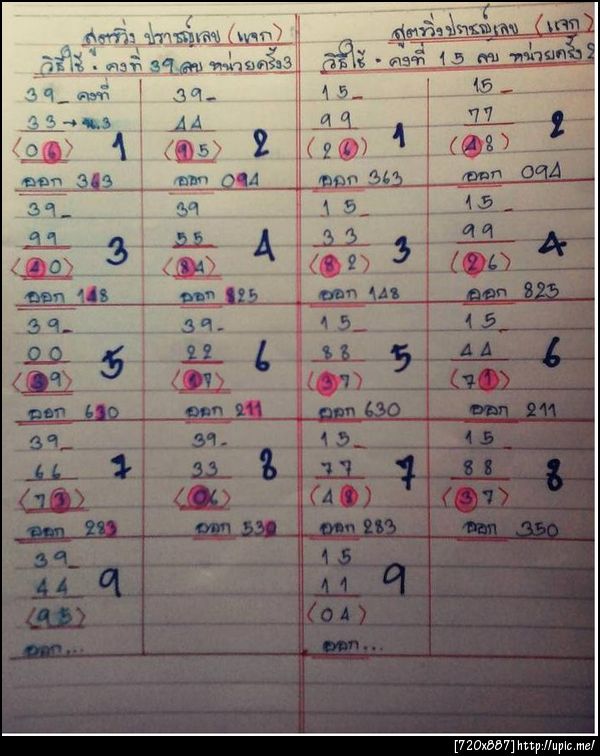 สูตรวิ่ง ปราชญ์เลข (แจก)
วิธีใช้ . คงที่ 39 ลบ หน่วยครั้ง3
39_ คงที่
33 → น.3
(06) 1
ออก 363
39_
44
(95) 2
ออก 094
39_
99
(40) 3
ออก 148
39
55
(84) 4
ออก 825
39_
00
(39) 5
ออก 630
39_
22
(17) 6
ออก 211
39_
66
(73) 7
ออก 283
39_
33
(06) 8
ออก 530
39_
44
(95) 9
ออก...
สูตรวิ่ง ปราชญ์เลข (แจก)
วิธีใช้ . คงที่ 15 ลบ หน่วยครั้ง2
15_
99
(26) 1
ออก 363
15_
77
(48) 2
ออก 094
15_
33
(82) 3
ออก 148
15_
99
(26) 4
ออก 825
15_
88
(37) 5
ออก 630
15_
44
(71) 6
ออก 211
15_
77
(48) 7
ออก 283
15
88
(37) 8
ออก 350
15
11
(04) 9
ออก...
[720x887]http://upic.me/